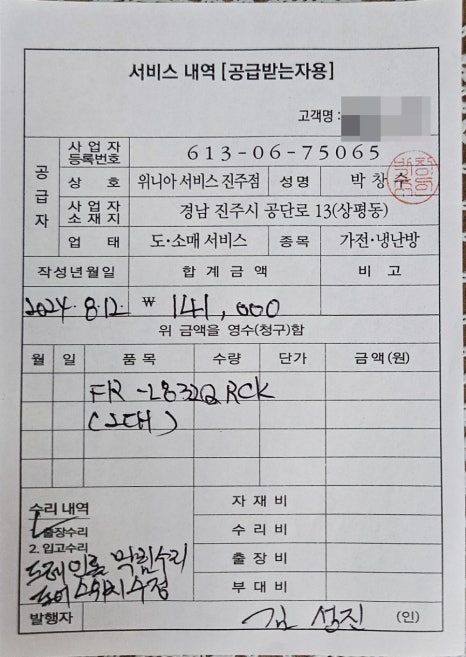 서비스 내역 [공급받는자용]
고객명 :
공급자
사업자등록번호 613-06-75065
상호 위니아 서비스 진주점 성명 박창수
사업자소재지 경남 진주시 공단로 13(상평동)
업태 도·소매 서비스 종목 가전·냉난방
작성년월일 합계금액 비고
2024. 8. 12. ₩ 141,000
위 금액을 영수(청구)함
월 일 품목 수량 단가 금액(원)
FR-L832QRCK
(2대)
수리 내역 자재비
출장수리 수리비
2. 입고수리 출장비
드레인률 막힘수리
도어 스위치 수정 부대비
발행자 김성진 (인)